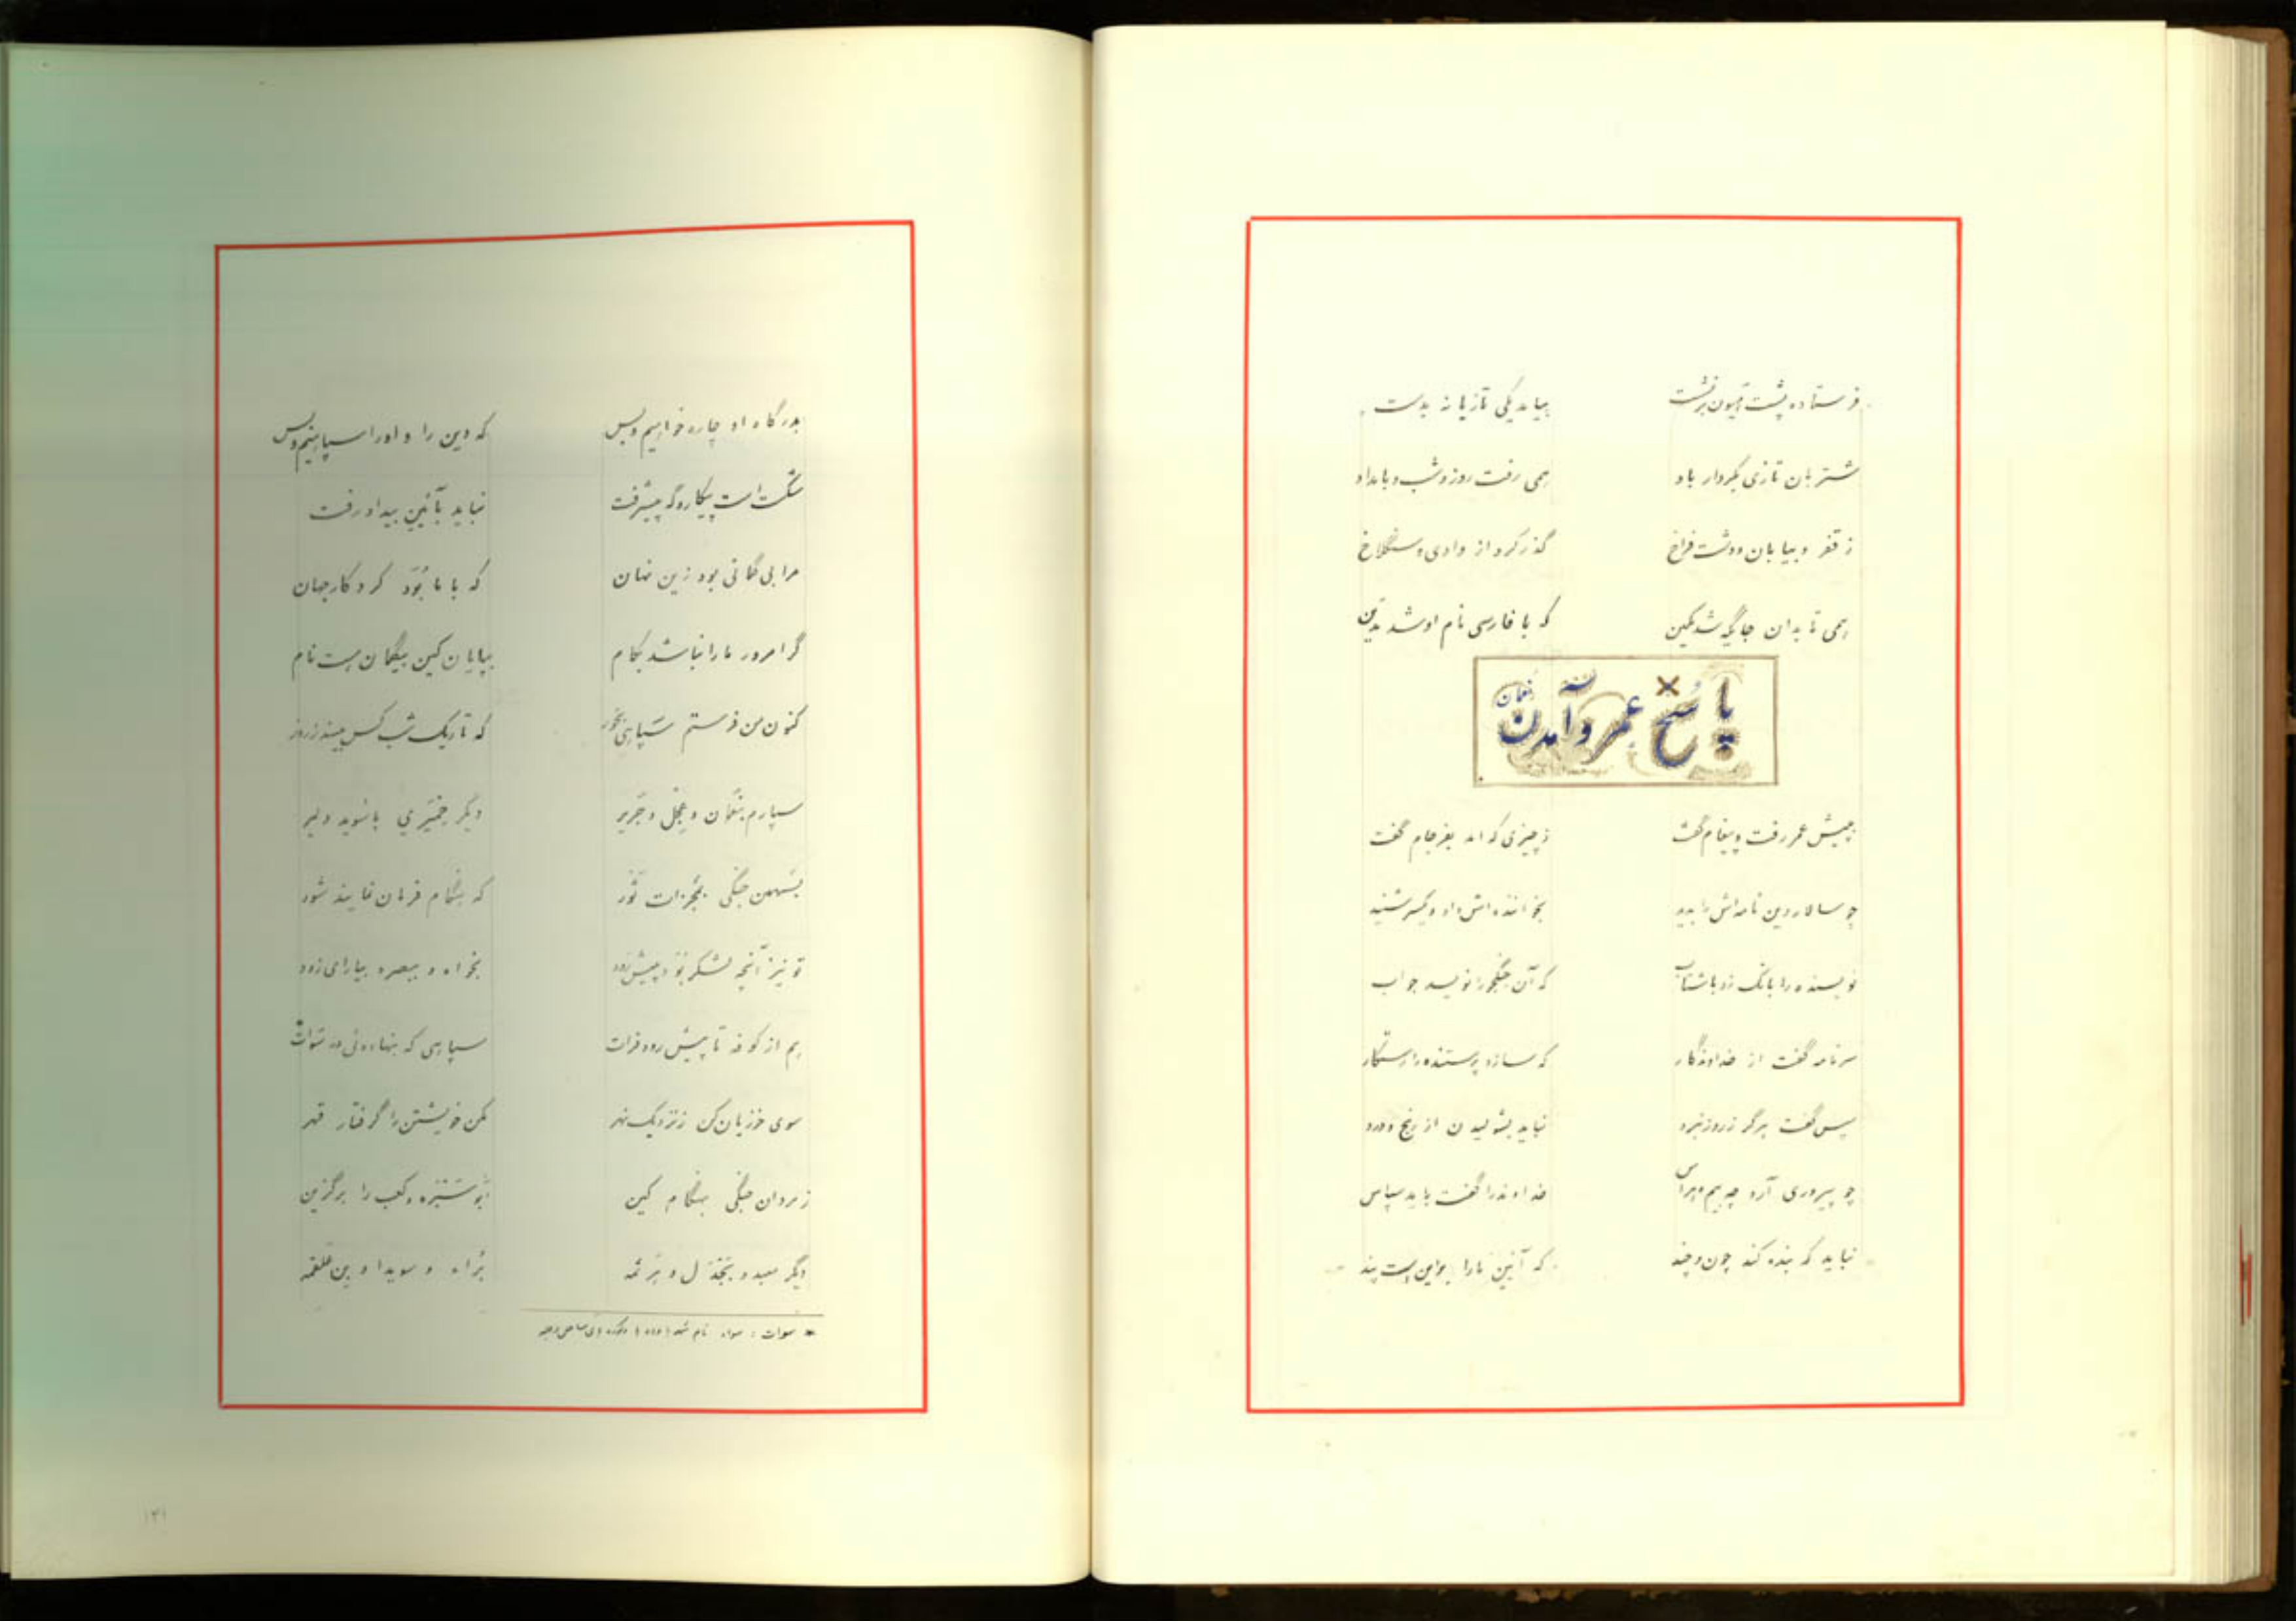 فرستاده پشت هیون برنشست بیامد یکی تازیانه بدست
شتربان تازی بکردار باد همی رفت روز و شب و بامداد
ز قفر و بیابان و دشت فراخ گذر کرد از وادی و سنگلاخ
همی تا بدان جایگه شد مکین که با فارسی نام او شد
پاسخ عمرو آمدن نعمان
بپیش عمر رفت و پیغام گفت ز چیزی که آمد بفرجام گفت
چو سالار دین نامه‌اش را بدید بخواننده‌اش داد و یکسر شنید
نویسنده را بانگ زد با شتاب که آن جنگجو را نویسد جواب
سرنامه گفت از خداوندگار که سازد پرستنده را رستگار
پس گفت هرگز ز روز نبرد نباید بشولیدن از رنج و درد
چو پیروزی آرد چه بیم و هراس خداوند را گفت باید سپاس
نباید که بنده کند چون و چند که آئین ما را بر این است پند
بدرگاه او چاره خواهیم و بس که دین را و او را سپاهیم و بس
شکست است پیکار و گه پیشرفت نباید بآئین بیداد رفت
مرا بی گمانی بود زین نهان که با ما بُوَد کردگار جهان
گر امروز ما را نباشد بکام بپایان کین بیگمان هست نام
کنون من فرستم سپاهی که تاریک شب کس نبیند ز روز
سپارم بنعمان و عجل و جریر دیگر حمیری باشوید دلیر
جنگی ثور که هنگام فرمان نمایند شور
تو نیز آنچه لشکر بُوَد پیش رود بخواه و ببصره بیارای زود
هم از کوفه تا پیش رود فرات سپاهی که بنهادونی در سَوات*
سوی خوزیان کن ز نزدیک نهر مکن خویشتن را گرفتار قهر
ز مردان جنگی بهنگام کین کعب را برگزین
دگر معبد و و هرثمه براء و سویدا و بن علقمه
* سوات : سواد نام
۱۳۱